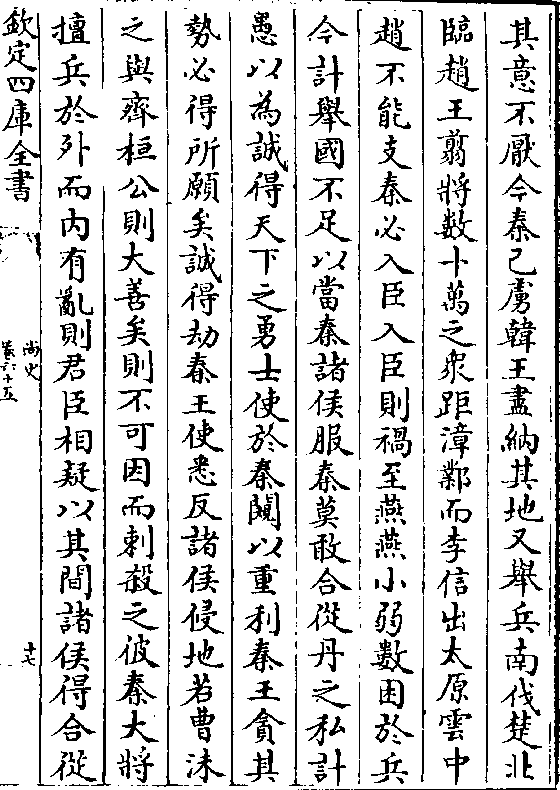 其意不厭今秦已虜韓王盡納其地又舉兵南伐楚北
臨趙王翦將数十萬之衆距漳鄴而李信出太原雲中
趙不能支秦必入臣入臣則禍至燕燕小弱數困於兵
今計舉國不足以當秦諸侯服秦莫敢合從丹之私計
愚以為誠得天下之勇士使於秦闚以重利秦王貪其
勢必得所願矣誠得劫秦王使悉反諸侯侵地若曹沫
之與齊桓公則大善矣則不可因而刺殺之彼秦大將
擅兵於外而内有亂則君臣相疑以其間諸侯得合從
欽定四庫全書
尚史
卷六十五
十七